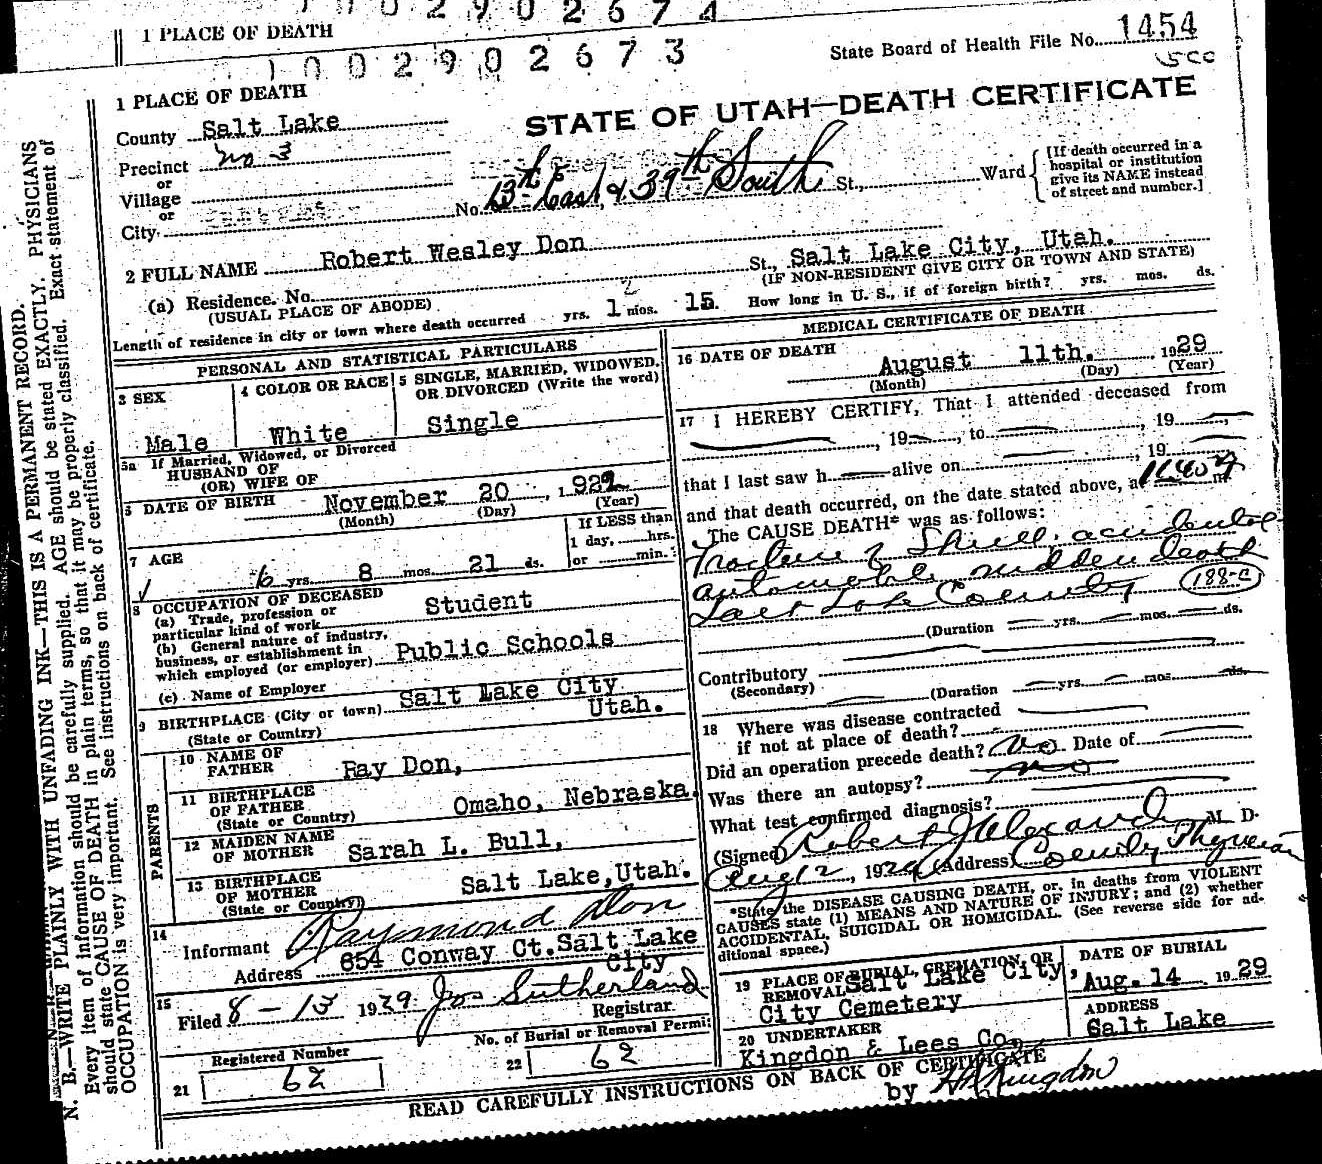 1 0 0 2 9 0 2 6 7 4
1 PLACE OF DEATH
1 0 0 2 9 0 2 6 7 3
State Board of Health File No. 1454
1 PLACE OF DEATH
STATE OF UTAH—DEATH CERTIFICATE
County Salt Lake
Precinct No 3
or
Village
or
City
No. 13th East, & 39th South St., Ward
[If death occurred in a
hospital or institution
give its NAME instead
of street and number.]
2 FULL NAME Robert Wesley Don
(a) Residence. No. St., Salt Lake City, Utah.
(USUAL PLACE OF ABODE) (IF NON-RESIDENT GIVE CITY OR TOWN AND STATE)
Length of residence in city or town where death occurred yrs. 1 mos. 15. How long in U. S., if of foreign birth? yrs. mos. ds.
PERSONAL AND STATISTICAL PARTICULARS
3 SEX
Male
4 COLOR OR RACE
White
5 SINGLE, MARRIED, WIDOWED,
OR DIVORCED (Write the word)
Single
5a If Married, Widowed, or Divorced
HUSBAND OF
(OR) WIFE OF
6 DATE OF BIRTH November 20, 1922
(Month) (Day) (Year)
7 AGE
6 yrs. 8 mos. 21 ds.
If LESS than
1 day, hrs.
or min.
8 OCCUPATION OF DECEASED
(a) Trade, profession or
particular kind of work Student
(b) General nature of industry,
business, or establishment in
which employed (or employer) Public Schools
(c) Name of Employer
9 BIRTHPLACE (City or town) Salt Lake City
(State or Country) Utah.
PARENTS
10 NAME OF
FATHER Ray Don,
11 BIRTHPLACE
OF FATHER
(State or Country) Omaho, Nebraska.
12 MAIDEN NAME
OF MOTHER Sarah L. Bull,
13 BIRTHPLACE
OF MOTHER
(State or Country) Salt Lake, Utah.
14
Informant Raymond Don
Address 654 Conway Ct. Salt Lake
City
15
Filed 8-13 1929 Jos Sutherland
Registrar.
Registered Number
21 62
No. of Burial or Removal Permit
22 62
MEDICAL CERTIFICATE OF DEATH
16 DATE OF DEATH
August 11th. 1929
(Month) (Day) (Year)
17 I HEREBY CERTIFY, That I attended deceased from
, 19 , to , 19 ,
that I last saw h alive on , 19
and that death occurred, on the date stated above, at m
The CAUSE DEATH* was as follows:
Fracture of Skull. accidental
automobile sudden death
Salt Lake County 188-c
(Duration yrs. mos. ds.
Contributory
(Secondary)
(Duration yrs. mos. ds.
18 Where was disease contracted
if not at place of death?
Did an operation precede death? No Date of
Was there an autopsy? no
What test confirmed diagnosis?
(Signed) Robert J Alexander M. D.
Aug 12, 1929 (Address) County Physician
*State the DISEASE CAUSING DEATH, or, in deaths from VIOLENT
CAUSES state (1) MEANS AND NATURE OF INJURY; and (2) whether
ACCIDENTAL, SUICIDAL OR HOMICIDAL. (See reverse side for ad-
ditional space.)
19 PLACE OF BURIAL, CREMATION, OR
REMOVAL Salt Lake City,
City Cemetery
DATE OF BURIAL
Aug. 14 1929
20 UNDERTAKER
Kingdon & Lees Co.
ADDRESS
Salt Lake
READ CAREFULLY INSTRUCTIONS ON BACK OF CERTIFICATE
by Kingdon
N. B.—WRITE PLAINLY WITH UNFADING INK—THIS IS A PERMANENT RECORD.
Every item of information should be carefully supplied. AGE should be stated EXACTLY. PHYSICIANS
should state CAUSE OF DEATH in plain terms, so that it may be properly classified. Exact statement of
OCCUPATION is very important. See instructions on back of certificate.